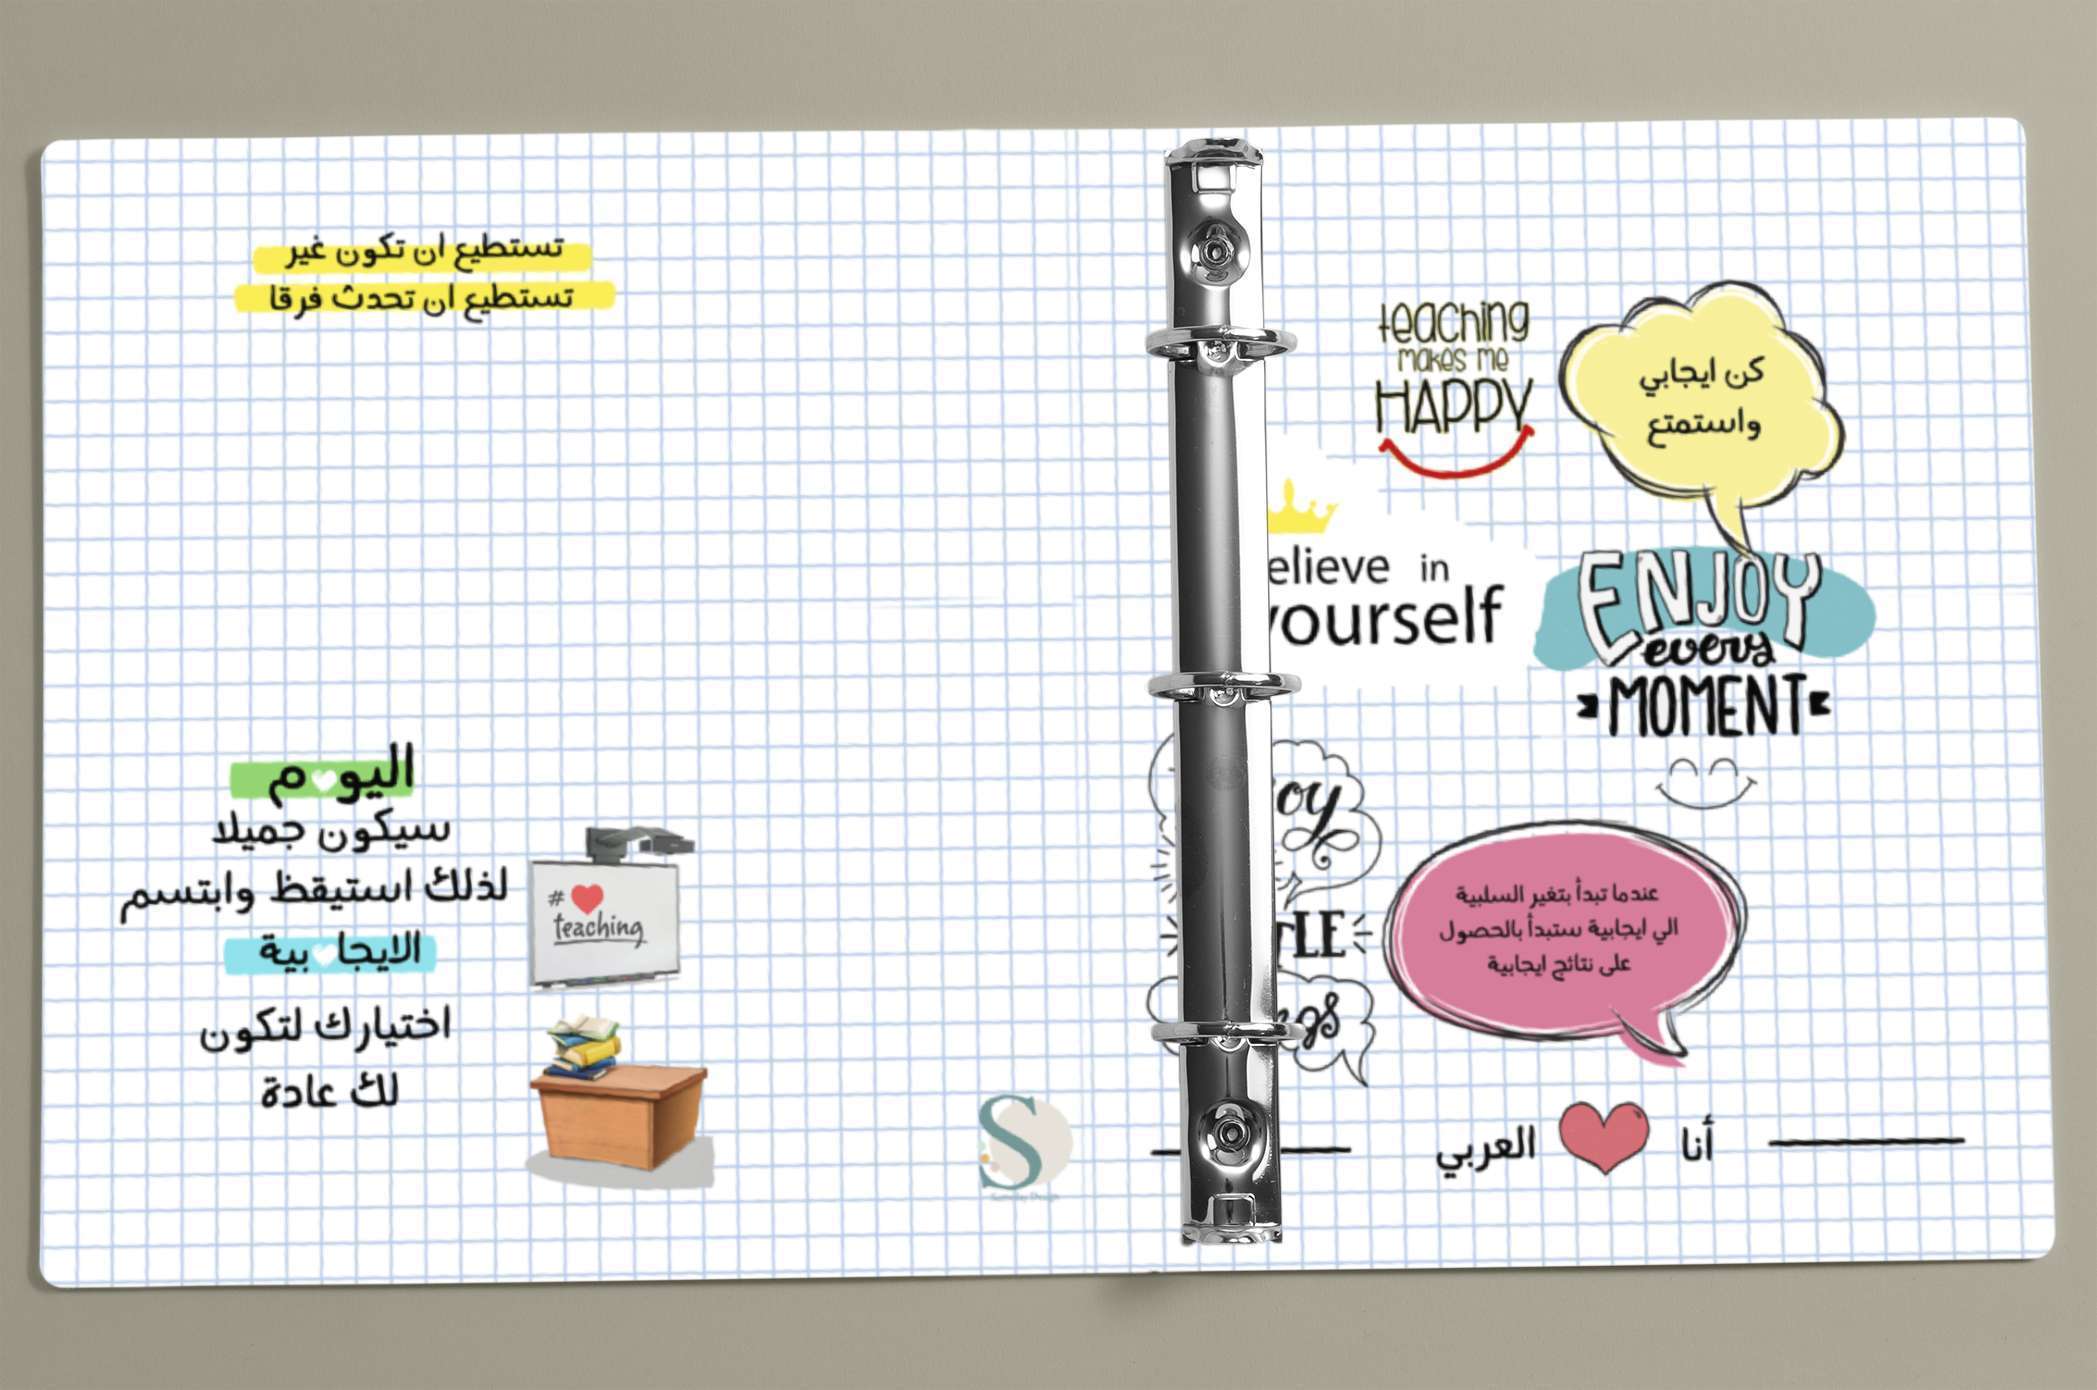 تستطيع ان تكون غير
تستطيع ان تحدث فرقا
اليوم
سيكون جميلا
لذلك استيقظ وابتسم
الايجابية
اختيارك لتكون
لك عادة
#
teaching
S
teaching
makes me
HAPPY
كن ايجابي
واستمتع
elieve in
yourself
ENJOY
every
MOMENT
oy
TLE
ngs
عندما تبدأ بتغير السلبية
الي ايجابية ستبدأ بالحصول
على نتائج ايجابية
أنا العربي